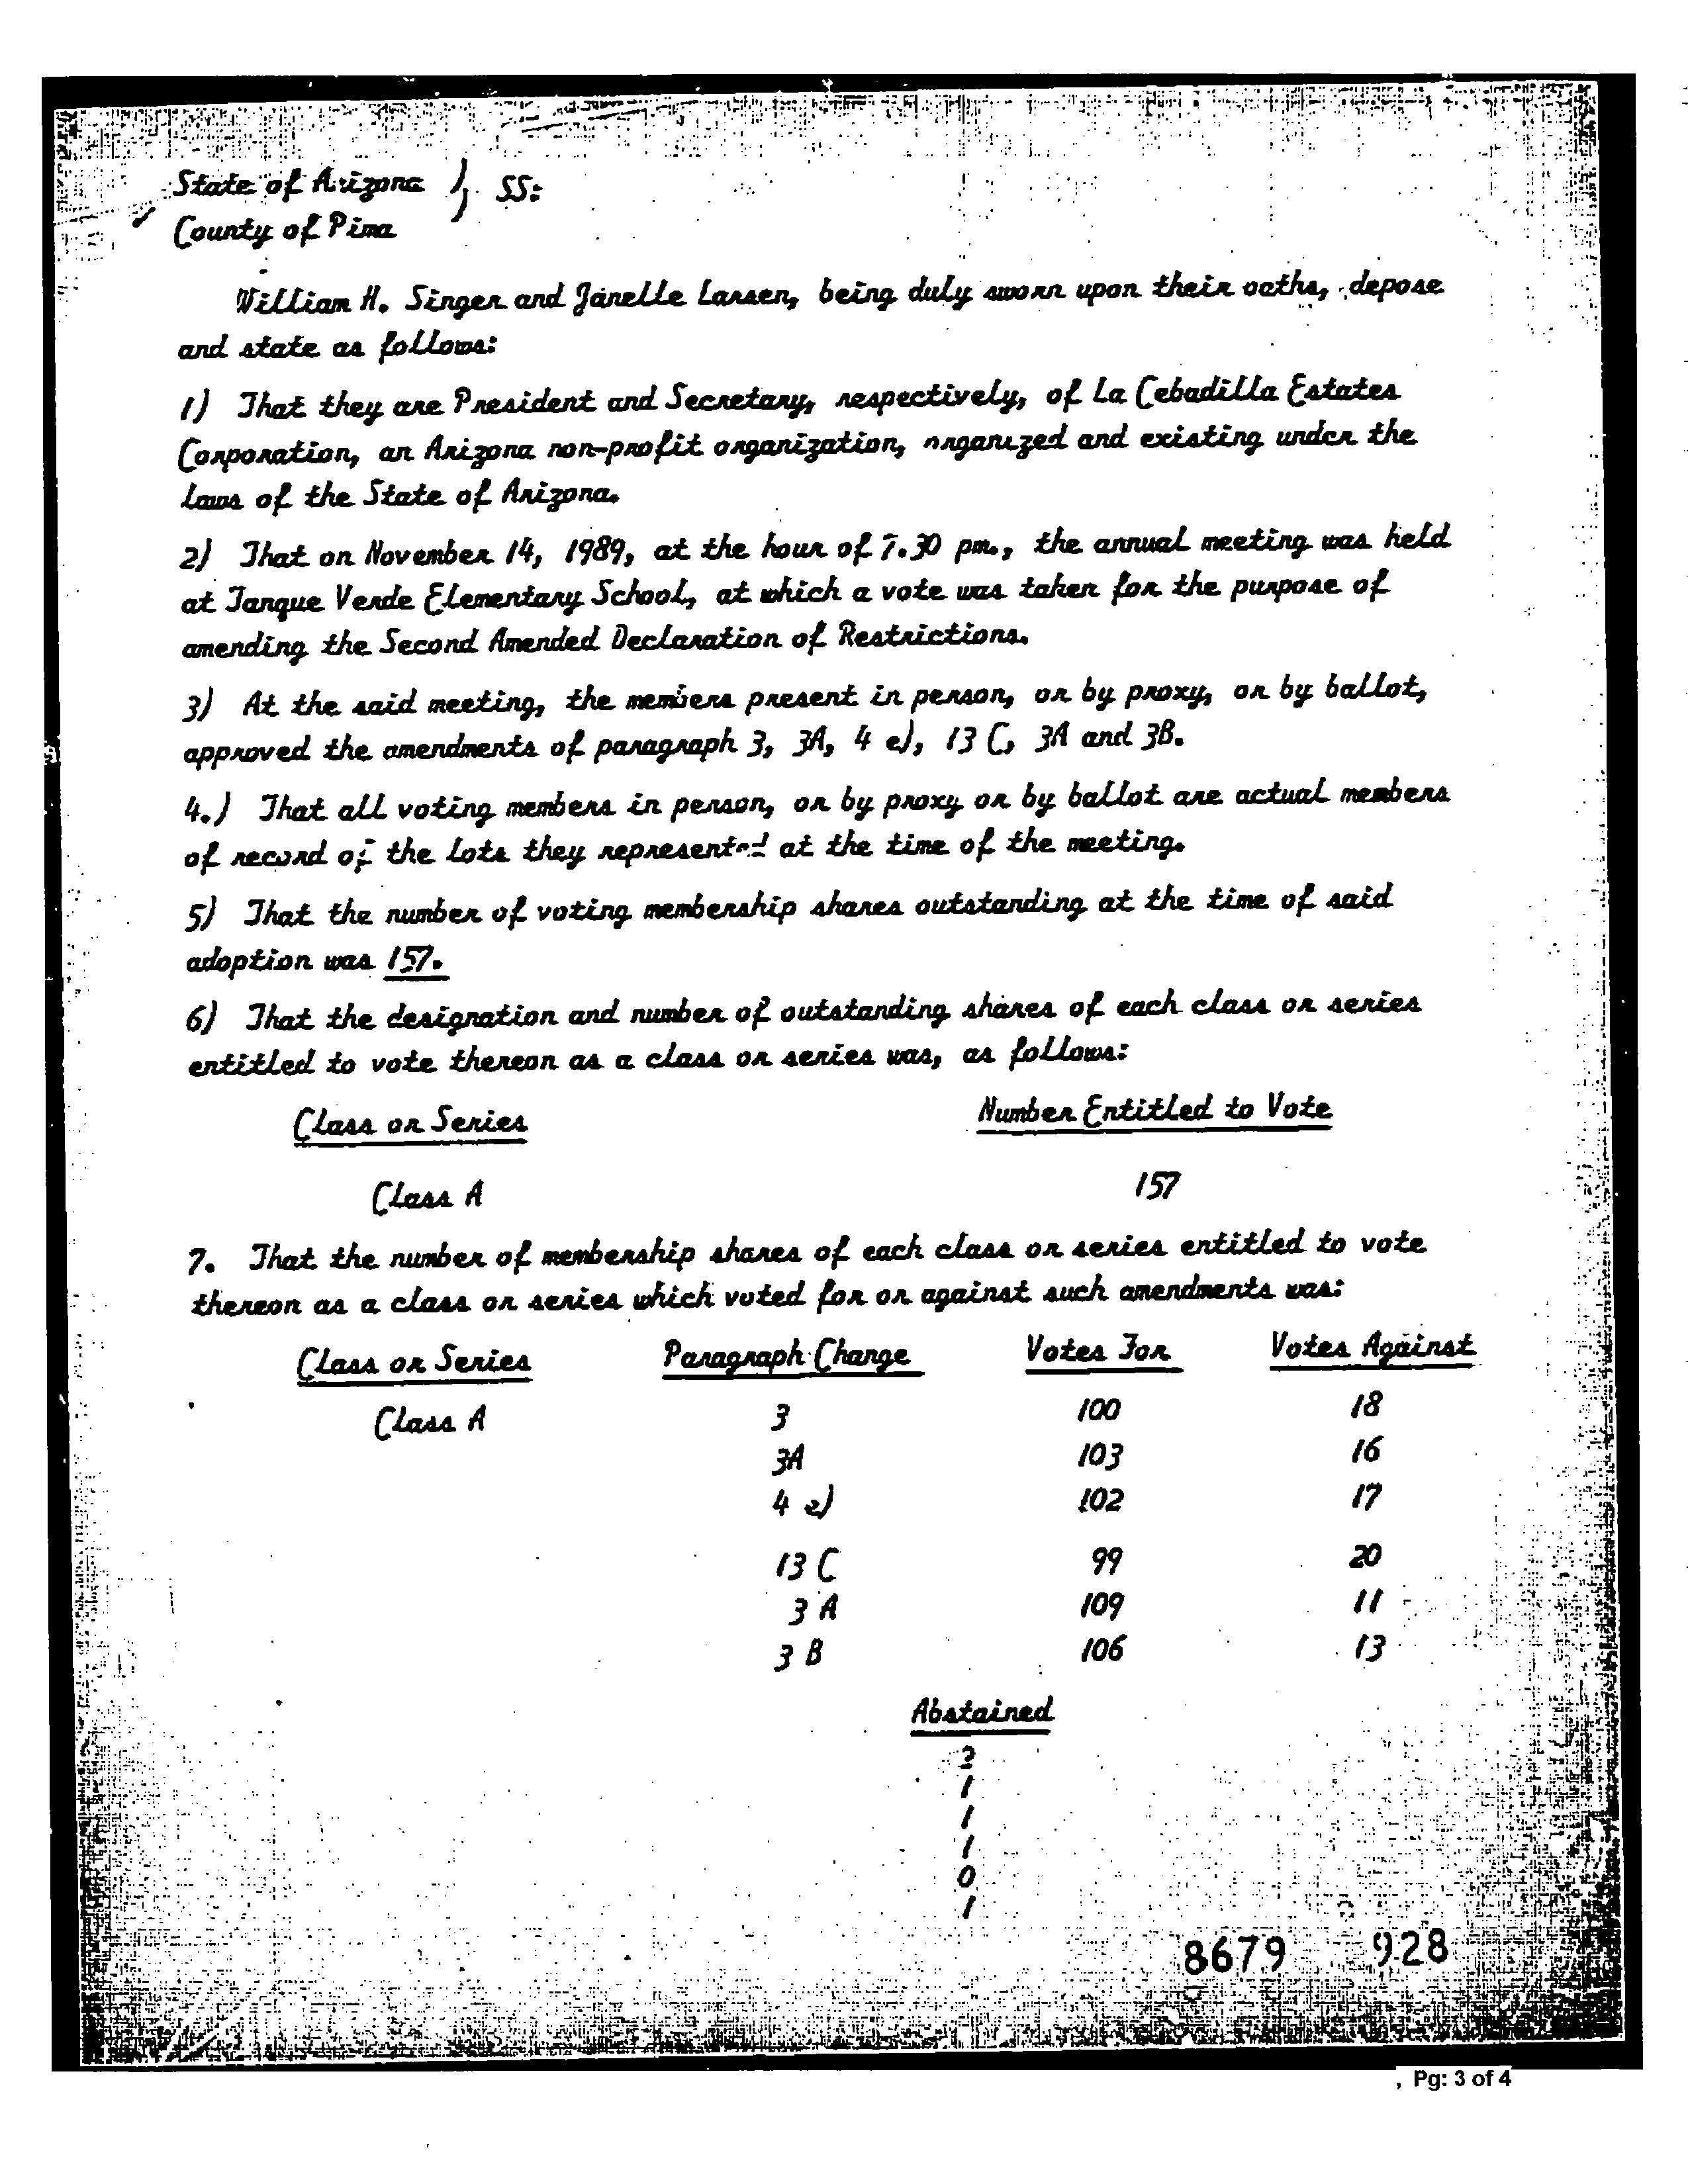 State of Arizona ) SS:
County of Pima
William H. Singer and Janelle Larsen, being duly sworn upon their oaths, depose
and state as follows:
1) That they are President and Secretary, respectively, of La Cebadilla Estates
Corporation, an Arizona non-profit organization, organized and existing under the
laws of the State of Arizona.
2) That on November 14, 1989, at the hour of 7.30 pm., the annual meeting was held
at Tanque Verde Elementary School, at which a vote was taken for the purpose of
amending the Second Amended Declaration of Restrictions.
3) At the said meeting, the members present in person, or by proxy, or by ballot,
approved the amendments of paragraph 3, 3A, 4 e), 13 C, 3A and 3B.
4.) That all voting members in person, or by proxy or by ballot are actual members
of record of the lots they represented at the time of the meeting.
5) That the number of voting membership shares outstanding at the time of said
adoption was 157.
6) That the designation and number of outstanding shares of each class or series
entitled to vote thereon as a class or series was, as follows:
Class or Series Number Entitled to Vote
Class A 157
7. That the number of membership shares of each class or series entitled to vote
thereon as a class or series which voted for or against such amendments was:
Class or Series Paragraph Change Votes For Votes Against
Class A 3 100 18
3A 103 16
4 e) 102 17
13 C 99 20
3 A 109 11
3 B 106 13
Abstained
2
1
1
1
0
1
8679 928
, Pg: 3 of 4